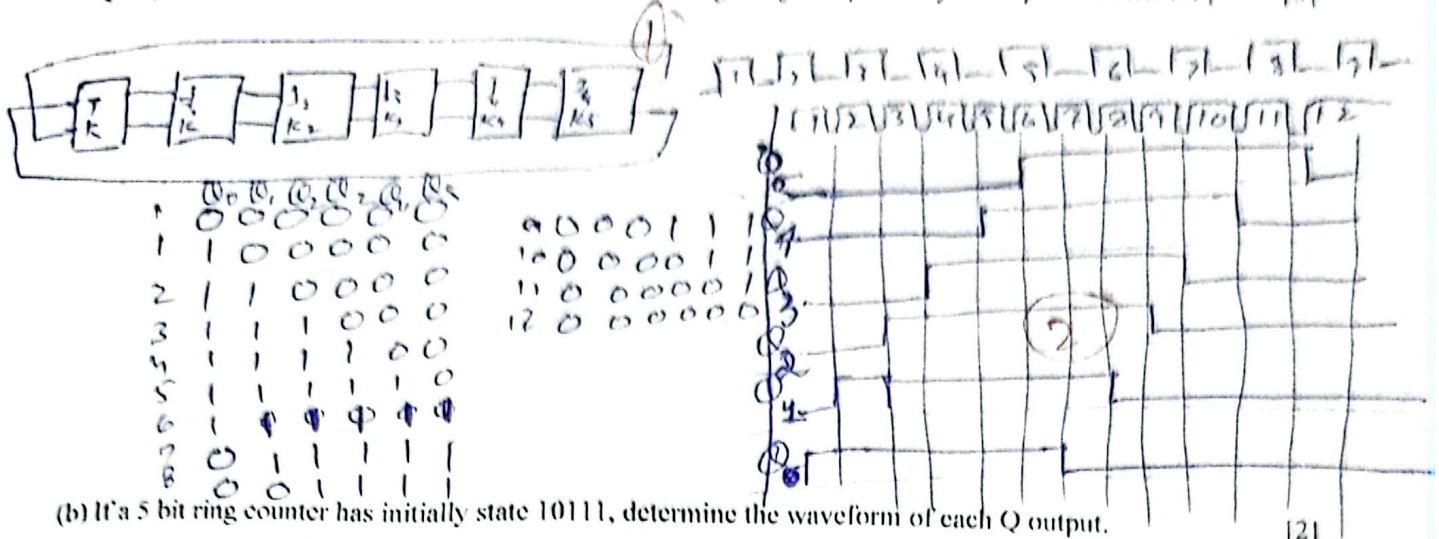 1
J K
J K
J₁ K₂
K₃
K₄
K₅
1 2 3 4 5 6 7 8 9
1 2 3 4 5 6 7 8 9 10 11 12
Q₀ Q₁ Q₂ Q₃ Q₄ Q₅
0 0 0 0 0 0
1 1 0 0 0 0 0
2 1 1 0 0 0 0
3 1 1 1 0 0 0
4 1 1 1 1 0 0
5 1 1 1 1 1 0
6 1 1 1 1 1 1
7 0 1 1 1 1 1
8 0 0 1 1 1 1
9 0 0 0 1 1 1
10 0 0 0 0 1 1
11 0 0 0 0 0 1
12 0 0 0 0 0 0
Q₅
Q₄
Q₃
Q₂
Q₁
Q₀
2
(b) If a 5 bit ring counter has initially state 10111, determine the waveform of each Q output. [2]